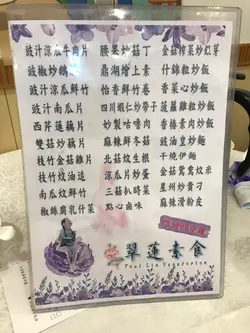 豉汁涼瓜牛肉片
豉椒炒鵝
豉汁涼瓜鮮竹
豉汁南瓜片
西芹雞藕片
雙菇炒藕片
枝竹金菇雞片
枝竹炆油追
南瓜炆鮮竹
椒絲腐乳什菜
腰果炒菇丁
鼎湖燴上素
怡香鮮竹卷
四川蝦仁炒帶子
妙製咕嚕肉
北菇炆生根
涼瓜片炒蛋
三菇扒時菜
點心鹵味
金菇韭菜炒紅芽
什錦粒炒飯
香菜心炒飯
菠蘿雞粒炒飯
香椿素肉炒飯
豉油皇炒麵
干燒伊麵
金菇鴛鴦炆米
星州炒貴刁
麻辣滑粉皮
翠蓮素食
Tsui Lin Vegetarian